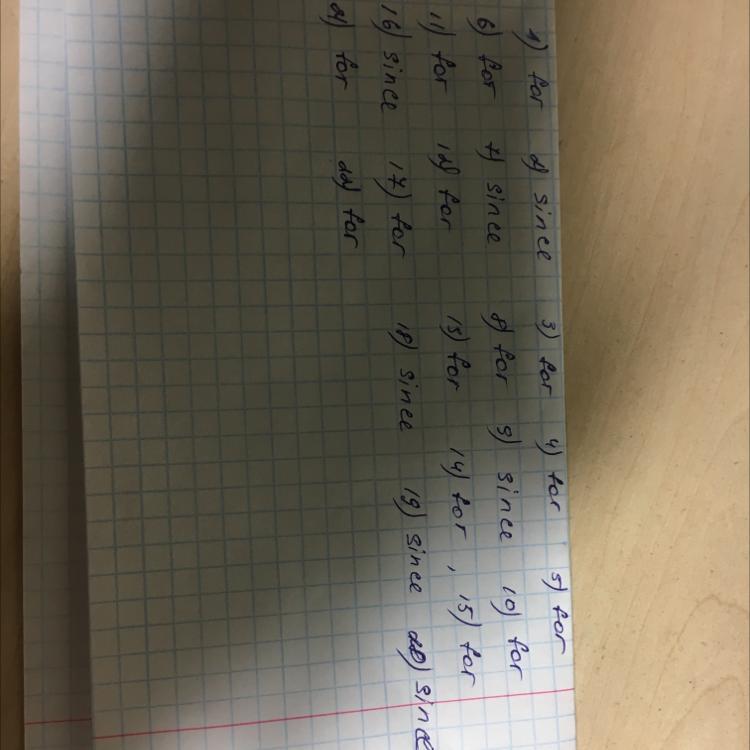 1) for 2) since 3) for 4) for 5) for
6) for 7) since 8) for 9) since 10) for
11) for 12) for 13) for 14) for, 15) for
16) since 17) for 18) since 19) since 20) since
21) for 22) for